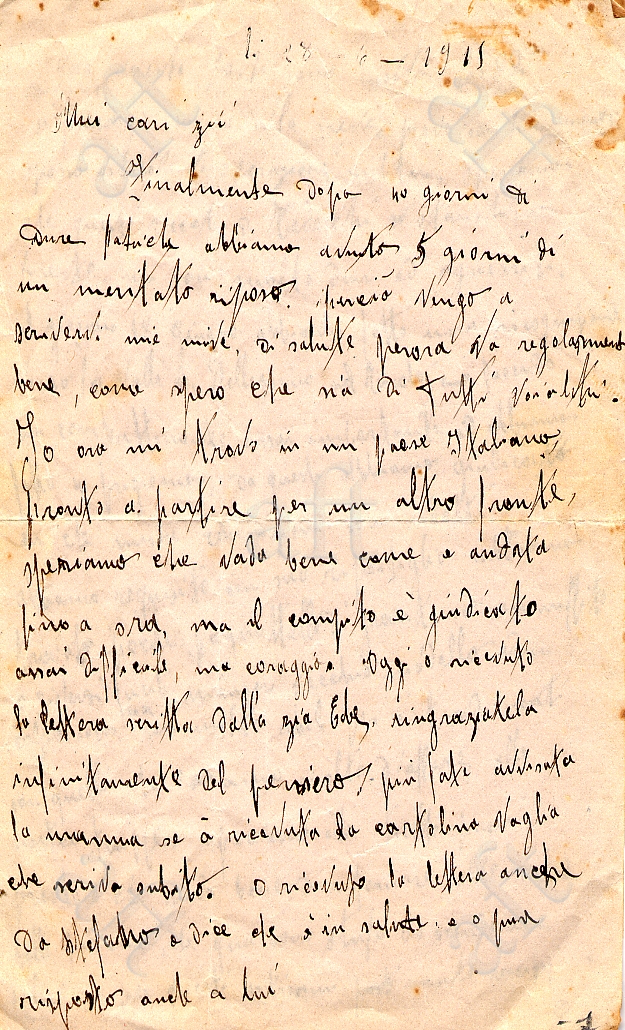 li 28 - 6 - 1915
Miei cari zii
Finalmente dopo 40 giorni di
dure fatiche abbiamo avuto 5 giorni di
un meritato riposo. perciò vengo a
scrivervi mie nuove, di salute perora va regolarmente
bene, come spero che sia di tutti voialtri.
Io ora mi trovo in un paese Italiano
pronto a partire per un altro fronte,
speriamo che vada bene come e andata
fino a ora, ma il compito è giudicato
assai difficile, ma coraggio. Oggi o ricevuto
la lettera scritta dalla zia Ebe, ringraziatela
infinitamente del pensiero, più fate avvisata
la mamma se à ricevuta la cartolina Vaglia
che scriva subito. O ricevuto la lettera anche
da Stefano e dice che è in salute e o pure
risposto anche a lui